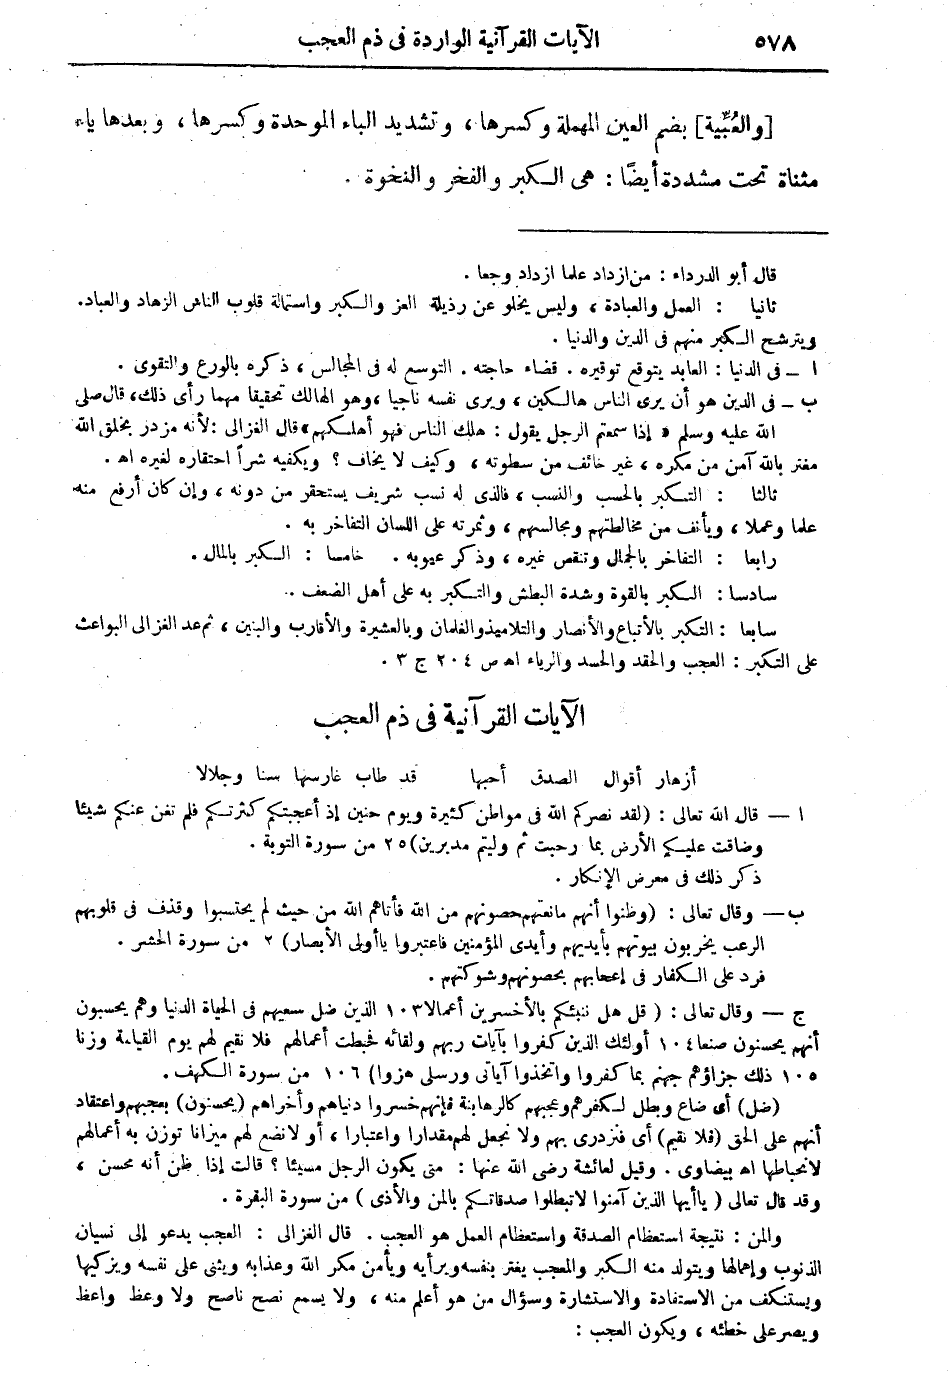 ٥٧٨ الآيات القرآنية الواردة فى ذم العجب
[والعُبِّية] بضم العين المهملة وكسرها، وتشديد الباء الموحدة وكسرها، وبعدها ياء
مثناة تحت مشددة أيضًا: هى الكبر والفخر والنخوة.
قال أبو الدرداء: من ازداد علما ازداد وجعا.
ثانيا : العمل والعبادة، وليس يخلو عن رذيلة العز والكبر واستمالة قلوب الناس الزهاد والعباد.
ويترشح الكبر منهم فى الدين والدنيا.
ا ــ فى الدنيا: العابد يتوقع توقيره. قضاء حاجته. التوسع له فى المجالس، ذكره بالورع والتقوى.
ب ــ فى الدين هو أن يرى الناس هالكين، ويرى نفسه ناجيا، وهو الهالك تحقيقا مهما رأى ذلك، قال صلى
الله عليه وسلم «إذا سمعتم الرجل يقول: هلك الناس فهو أهلكهم» قال الغزالى: لأنه مزدر بخلق الله
مغتر بالله آمن من مكره، غير خائف من سطوته، وكيف لا يخاف؟ ويكفيه شراً احتقاره لغيره اهـ.
ثالثا : التكبر بالحسب والنسب، فالذى له نسب شريف يستحقر من دونه، وإن كان أرفع منه
علما وعملا، ويأنف من مخالطتهم ومجالسهم، وثمرته على اللسان التفاخر به.
رابعا : التفاخر بالجمال وتنقص غيره، وذكر عيوبه. خامسا : الكبر بالمال.
سادسا: الكبر بالقوة وشدة البطش والتكبر به على أهل الضعف.
سابعا : التكبر بالأتباع والأنصار والتلاميذ والغلمان وبالعشيرة والأقارب والبنين، ثم عد الغزالى البواعث
على التكبر: العجب والحقد والحسد والرياء اهـ ص ٢٠٤ ج ٣.
الآيات القرآنية فى ذم العجب
أزهار أقوال الصدق أحبها قد طاب غارسها سنا وجلالا
ا ــ قال الله تعالى: (لقد نصركم الله فى مواطن كثيرة ويوم حنين إذ أعجبتكم كثرتكم فلم تغن عنكم شيئا
وضاقت عليكم الأرض بما رحبت ثم وليتم مدبرين) ٢٥ من سورة التوبة.
ذكر ذلك فى معرض الإنكار.
ب ــ وقال تعالى: (وظنوا أنهم مانعتهم حصونهم من الله فأتاهم الله من حيث لم يحتسبوا وقذف فى قلوبهم
الرعب يخربون بيوتهم بأيديهم وأيدى المؤمنين فاعتبروا ياأولى الأبصار) ٢ من سورة الحشر.
فرد على الكفار فى إعجابهم بحصونهم وشوكتهم.
ج ــ وقال تعالى: (قل هل ننبئكم بالأخسرين أعمالا ١٠٣ الذين ضل سعيهم فى الحياة الدنيا وهم يحسبون
أنهم يحسنون صنعا ١٠٤ أولئك الذين كفروا بآيات ربهم ولقائه فحبطت أعمالهم فلا نقيم لهم يوم القيامة وزنا
١٠٥ ذلك جزاؤهم جهنم بما كفروا واتخذوا آياتى ورسلى هزوا) ١٠٦ من سورة الكهف.
(ضل) أى ضاع وبطل لكفرهم وعجبهم كالرهابنة فإنهم خسروا دنياهم وأخراهم (يحسنون) بعجبهم واعتقاد
أنهم على الحق (فلا نقيم) أى فنزدرى بهم ولا نجعل لهم مقدارا واعتبارا، أو لانضع لهم ميزانا توزن به أعمالهم
لانحباطها اهـ بيضاوى. وقيل لعائشة رضى الله عنها: متى يكون الرجل مسيئا؟ قالت إذا ظن أنه محسن،
وقد قال تعالى (ياأيها الذين آمنوا لاتبطلوا صدقاتكم بالمن والأذى) من سورة البقرة.
والمن: نتيجة استعظام الصدقة واستعظام العمل هو العجب. قال الغزالى : العجب يدعو إلى نسيان
الذنوب وإهمالها ويتولد منه الكبر والمعجب يغتر بنفسه وبرأيه ويأمن مكر الله وعذابه ويثنى على نفسه ويزكيها
ويستنكف من الاستفادة والاستشارة وسؤال من هو أعلم منه، ولا يسمع نصح ناصح ولا وعظ واعظ
ويصر على خطئه، ويكون العجب: